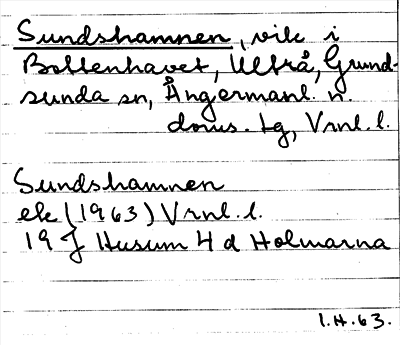 Sundshamnen, vik i
Bottenhavet, Ultrå, Grund-
sunda sn, Ångermanl. n.
doms. tg, Vrnl. l.
Sundshamnen
ek (1963) Vrnl. l.
19 J Husum 4 d Holmarna
I.H.63.